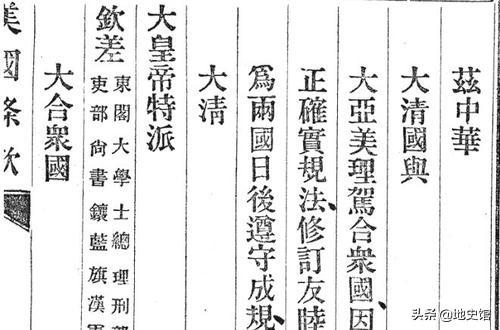 茲中華
大清國與
大亞美理駕合衆國、因
正確實規法、修訂友睦
爲兩國日後遵守成規、
大清
大皇帝特派
欽差東閣大學士總理刑部
吏部尙書鑲藍旗漢軍
大合衆國
美國條欵
头条 @地史馆